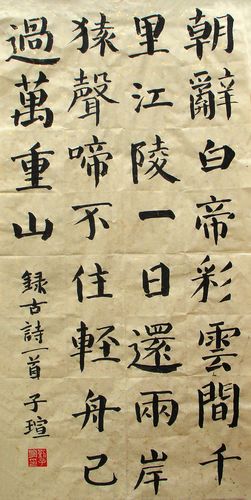 朝辭白帝彩雲間千
里江陵一日還兩岸
猿聲啼不住輕舟已
過萬重山
録古詩一首 子瑄